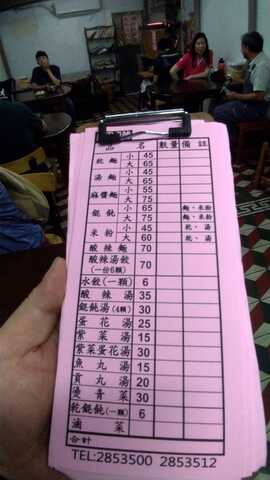 品 名 數量 備註
乾麵 小 45
大 65
湯麵 小 45
大 65
麻醬麵 小 55
大 75
餛飩 小 65 麵、米粉
大 75 麵、米粉
米粉 小 45 乾、湯
大 60 乾、湯
酸辣麵 70
酸辣湯餃 70
(一份6顆)
水餃(一顆) 6
酸辣湯 35
餛飩湯(4顆) 30
蛋花湯 25
紫菜湯 15
紫菜蛋花湯 30
魚丸湯 15
貢丸湯 20
燙青菜 30
乾餛飩(一顆) 6
滷菜
合計
TEL:2853500 2853512